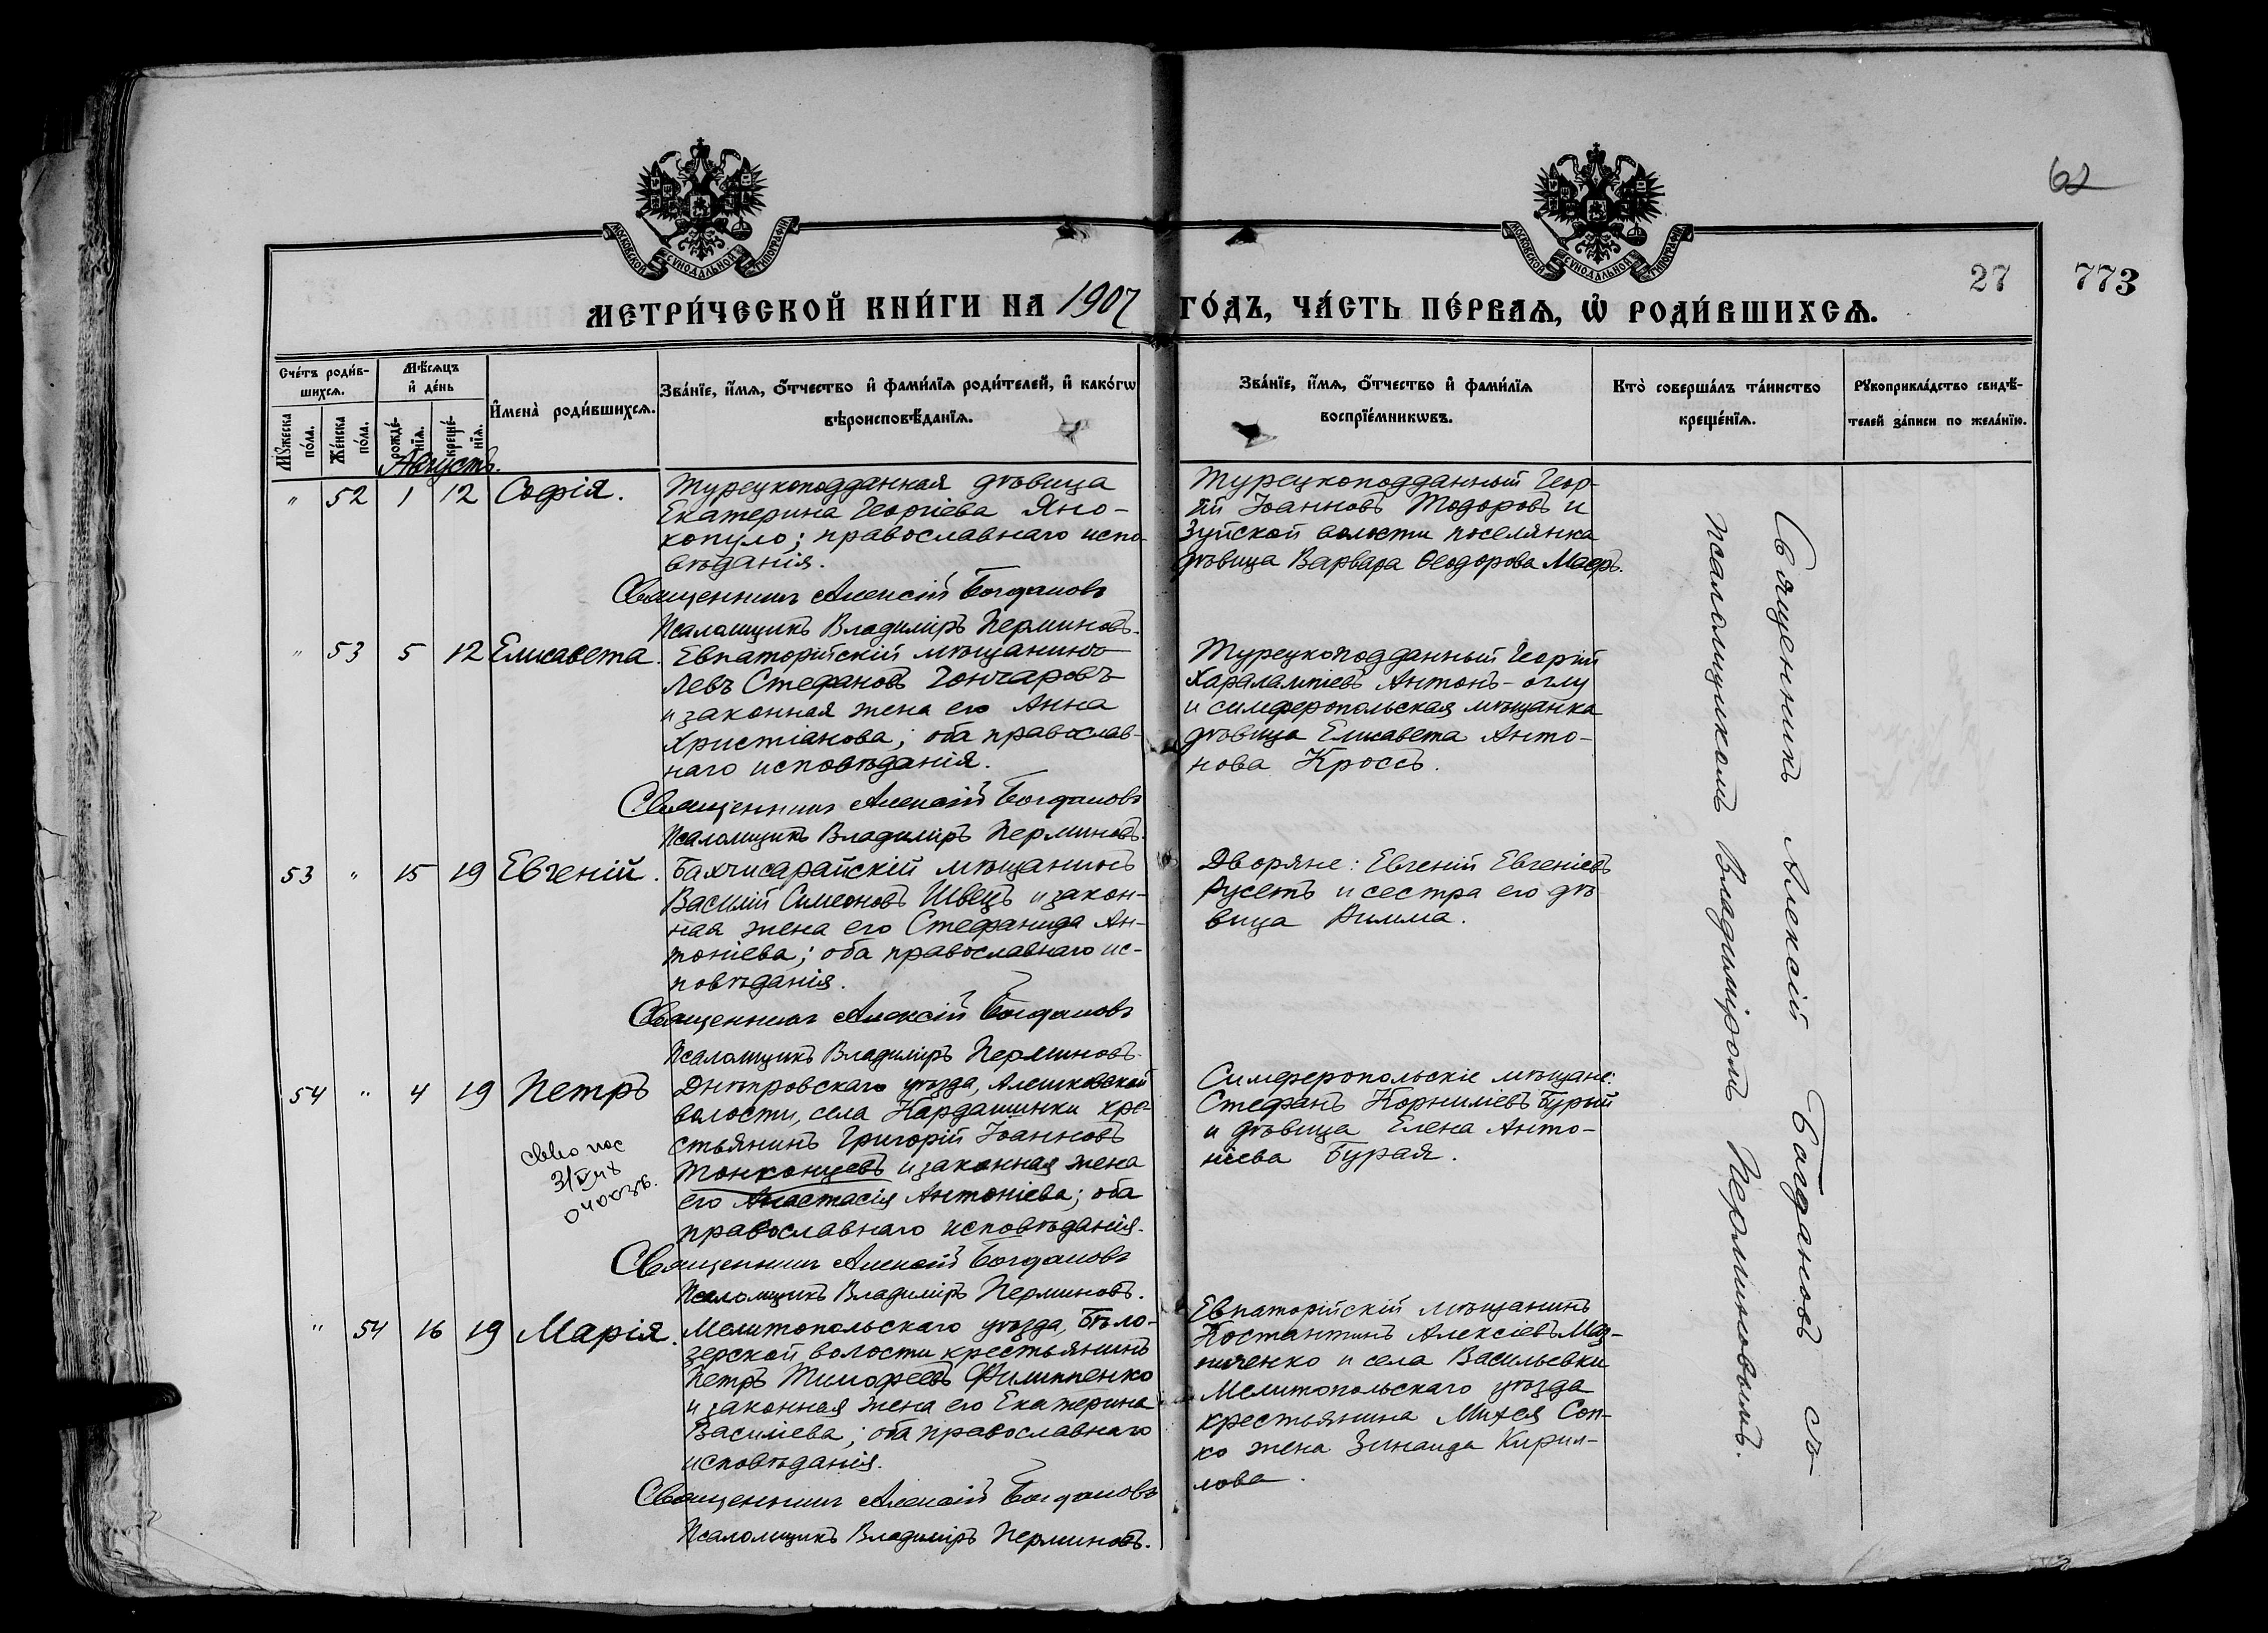 62
27 773
МОСКОВСКОЙ СѴНОДАЛЬНОЙ ТИПОГРАФІИ
МОСКОВСКОЙ СѴНОДАЛЬНОЙ ТИПОГРАФІИ
МЕТРИ́ЧЕСКОЙ КНИ́ГИ НА 1907 ГО́ДЪ, ЧА́СТЬ ПЕ́РВАѦ, Ѡ҆ РОДИ́ВШИХСѦ.
Сче́тъ роди́в-
шихсѧ.
Мꙋжеска
по́ла.
Же́нска
по́ла.
Мѣ́сѧцъ
и҆ де́нь
рожде́-
нїѧ.
креще́-
нїѧ.
И҆мена̀ роди́вшихсѧ.
Зва́нїе, и҆́мѧ, ѻ҆́тчество и҆ фами́лїѧ роди́телей, и҆ како́гѡ
вѣроисповѣ́данїѧ.
Зва́нїе, и҆́мѧ, ѻ҆́тчество и҆ фами́лїѧ
воспрїе́мникѡвъ.
Кто̀ соверша́лъ та́инство
креще́нїѧ.
Рꙋкоприкла́дство свидѣ́-
телей за́писи по жела́нїю.
Августъ.
" 52 1 12 Софія.
Турецкоподданная дѣвица
Екатерина Георгіева Яно-
копуло; православнаго испо-
вѣданія.
Священникъ Алексій Богдановъ
Псаломщикъ Владиміръ Перминовъ.
Турецкоподданный Геор-
гій Іоанновъ Тодоровъ и
Зуйской волости поселянка
дѣвица Варвара Ѳеодорова Маеръ.
" 53 5 12 Елисавета.
Евпаторійскій мѣщанинъ
Левъ Стефановъ Гончаровъ
и законная жена его Анна
Христіанова; оба православ-
наго исповѣданія.
Священникъ Алексій Богдановъ
Псаломщикъ Владиміръ Перминовъ.
Турецкоподданный Георгій
Харалампіевъ Антонъ-оглу
и симферопольская мѣщанка
дѣвица Елисавета Анто-
нова Кроссъ.
53 " 15 19 Евгеній.
Бахчисарайскій мѣщанинъ
Василій Симеоновъ Швецъ и закон-
ная жена его Стефанида Ан-
тоніева; оба православнаго ис-
повѣданія.
Священникъ Алексій Богдановъ
Псаломщикъ Владиміръ Перминовъ.
Дворяне: Евгеній Евгеніевъ
Русетъ и сестра его дѣ
вица Римма.
54 " 4 19 Петръ
Днѣпровскаго уѣзда, Алешковской
волости, села Кардашинки кре-
стьянинъ Григорій Іоанновъ
Тонконцевъ и законная жена
его Анастасія Антоніева; оба
православнаго исповѣданія.
Священникъ Алексій Богдановъ
Псаломщикъ Владиміръ Перминовъ.
Симферопольскіе мѣщане:
Стефанъ Корниліевъ Бурый
и дѣвица Елена Анто-
ніева Бурая.
" 54 16 19 Марія.
Мелитопольскаго уѣзда, Бѣло-
зерской волости крестьянинъ
Петръ Тимофеевъ Филиппенко
и законная жена его Екатерина
Василіева; оба православнаго
исповѣданія.
Священникъ Алексій Богдановъ
Псаломщикъ Владиміръ Перминовъ.
Евпаторійскій мѣщанинъ
Костантинъ Алексіевъ
и села Васильевки
Мелитопольскаго уѣзда
крестьянина Михея Соп-
ко жена Зинаида Кирил-
лова.
Священникъ Алексій Богдановъ съ
псаломщикомъ Владиміромъ Перминовымъ.